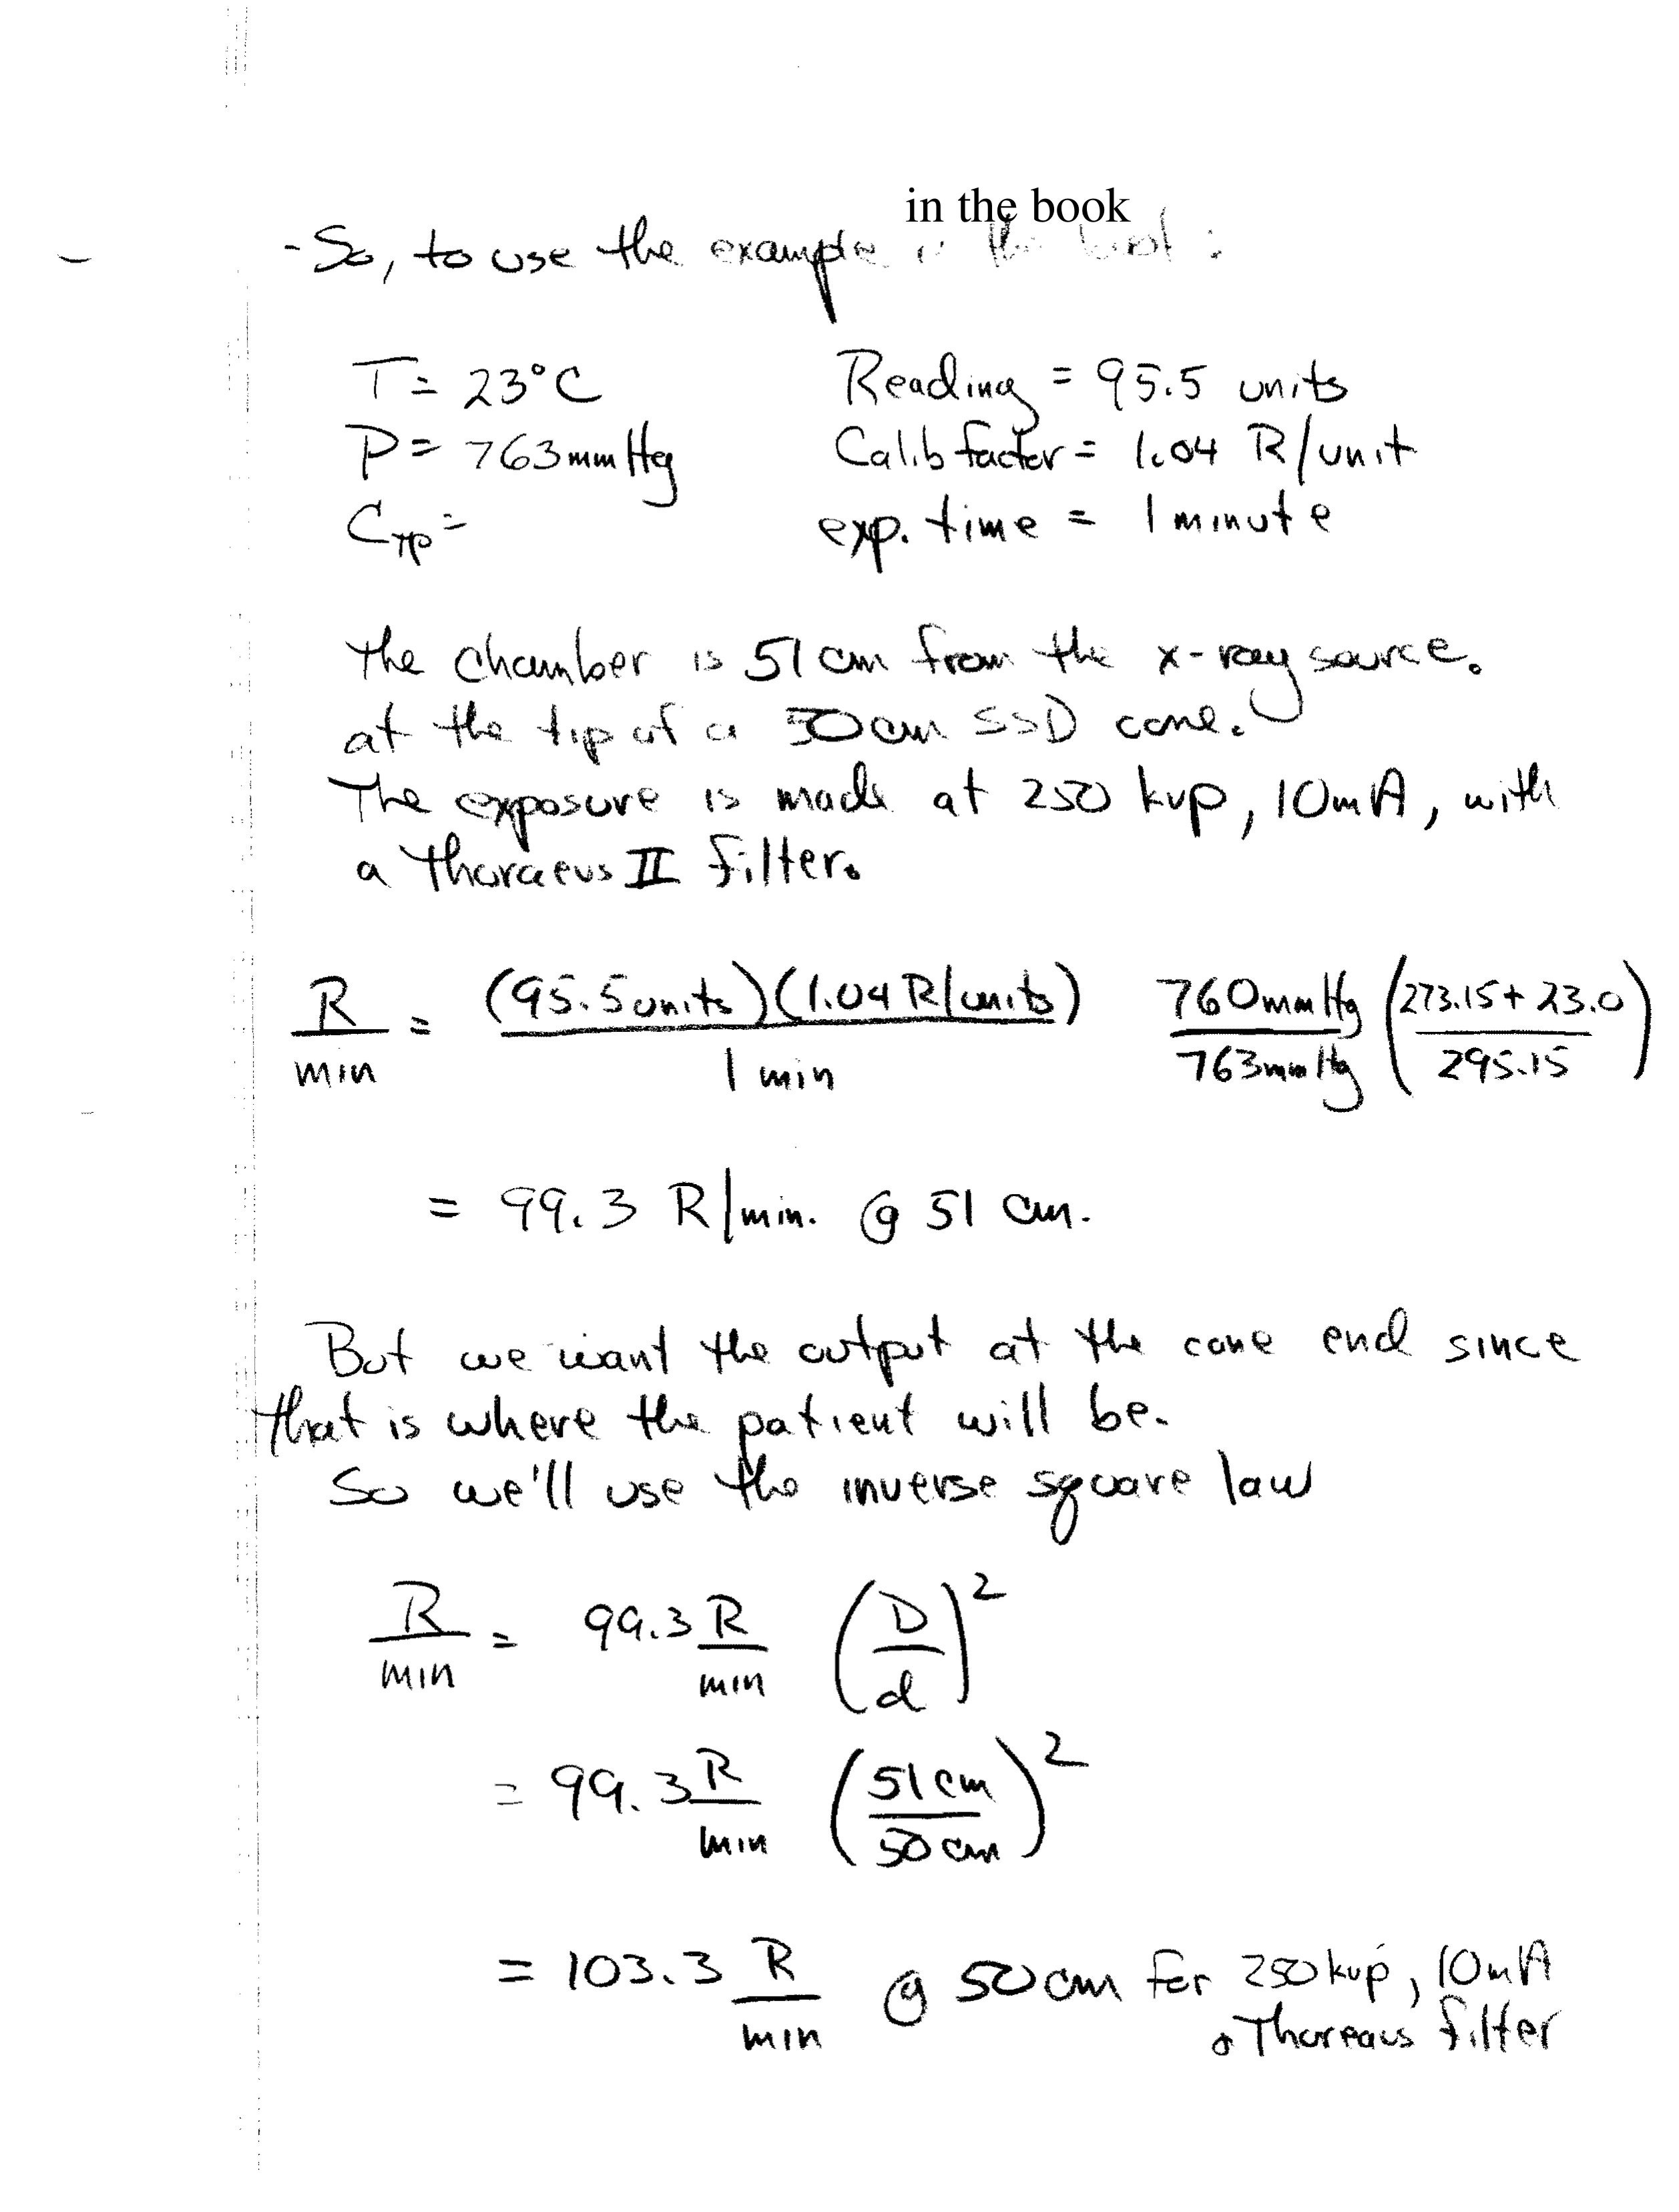 in the book
- So, to use the example in the book:
T = 23°C Reading = 95.5 units
P = 763 mm Hg Calib factor = 1.04 R/unit
C_TP = exp. time = 1 minute
The chamber is 51 cm from the x-ray source.
at the tip of a 50 cm SSD cone.
The exposure is made at 250 kvp, 10mA, with
a Thoraeus II filter.
R/min = (95.5 units)(1.04 R/units)/1 min 760 mm Hg/763 mm Hg ((273.15 + 23.0)/295.15)
= 99.3 R/min. @ 51 cm.
But we want the output at the cone end since
that is where the patient will be.
So we'll use the inverse square law
R/min = 99.3 R/min (D/d)²
= 99.3 R/min (51 cm/50 cm)²
= 103.3 R/min @ 50 cm for 250 kvp, 10mA
Thoreaus filter